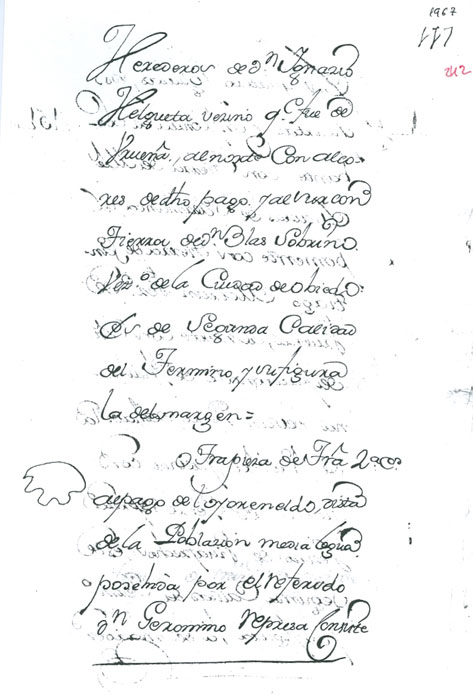 1967
117
212
Herederos de Dn Ignazio
Helgueta vezino q. fue de
al norte Con alco-
res de dho pago y al
Tierra de Dn Blas Sobrino
Vezo de la Ciudad de obiedo
Es de Segunda Calidad
del Termino, y su figura
la del margen =
otra pieza de Tra
al pago de dista
de la Poblazion media legua
posehida por el referido
Dn Geronimo Represa Consiste